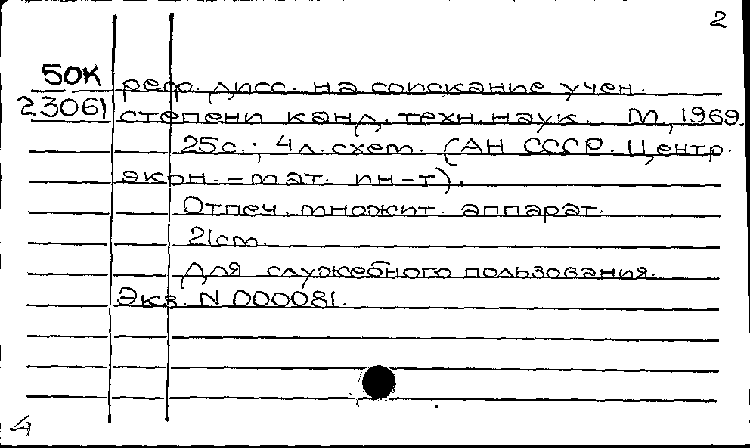 2
50К реф. дисс. на соискание учен.
23061 степени канд. техн. наук. М., 1969.
25с.; 4л. схем. (АН СССР. Центр.
экон.-мат. ин-т).
Отпеч. множит. аппарат.
21см.
Для служебного пользования.
Экз. N 000081.
4